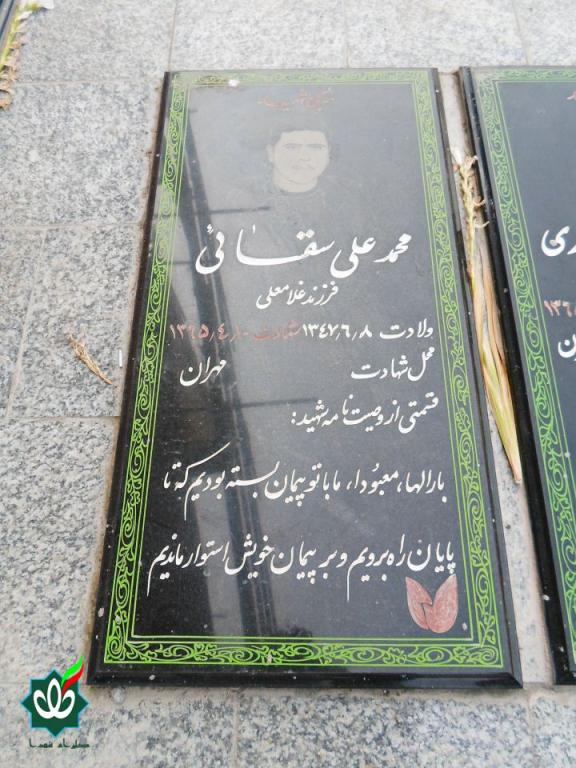 محمد علی سقائی
فرزند غلامعلی
ولادت ۱۳۴۷٫۶٫۸ شهادت ۱۳۶۵٫۴٫۱۰
محل شهادت مهران
قسمتی از وصیت نامه شهید:
بارالها، معبودا، ما با تو پیمان بسته بودیم که تا
پایان راه برویم و بر پیمان خویش استوار ماندیم